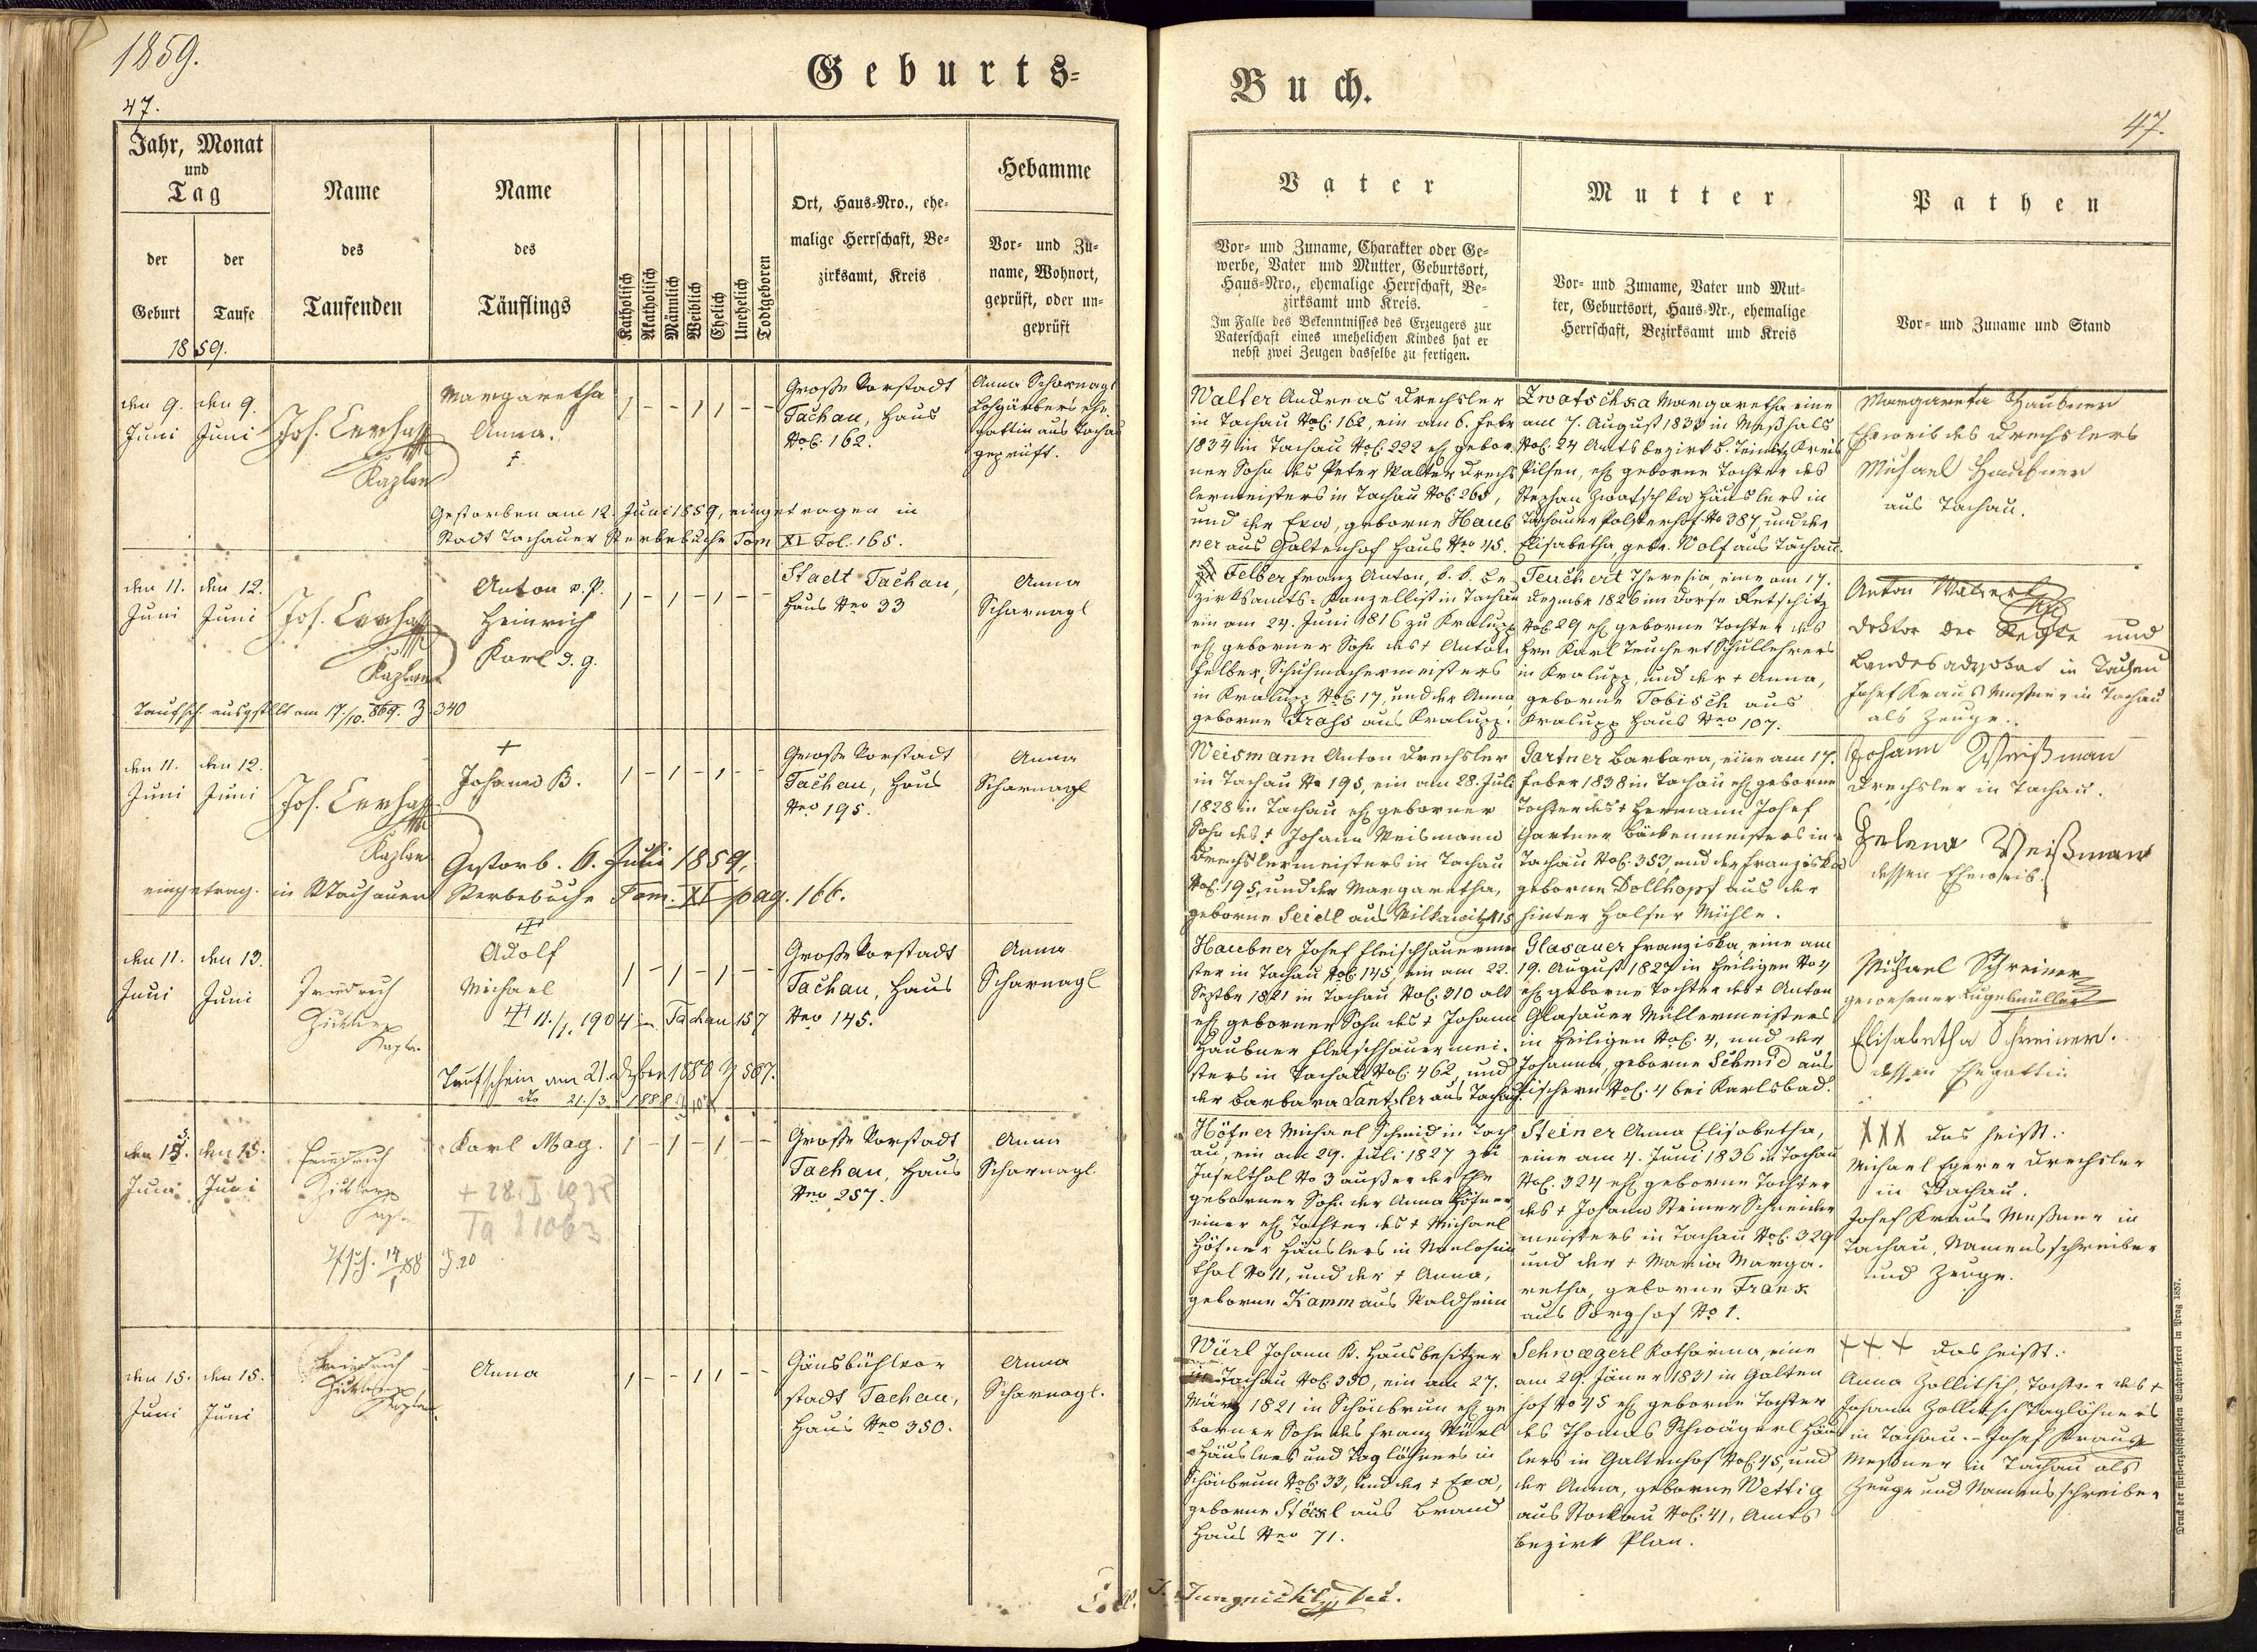 1859.
Geburts-
Buch.
47.
47.
Jahr, Monat
und
Tag
der
Geburt
der
Taufe
1859.
Name
des
Taufenden
Name
des
Täuflings
Katholisch
Akatholisch
Männlich
Weiblich
Ehelich
Unehelich
Todtgeboren
Ort, Haus-Nro., ehe-
malige Herrschaft, Be-
zirksamt, Kreis
Hebamme
Vor- und Zu-
name, Wohnort,
geprüft, oder un-
geprüft
Vater
Vor- und Zuname, Charakter oder Ge-
werbe, Vater und Mutter, Geburtsort,
Haus-Nro., ehemalige Herrschaft, Be-
zirksamt und Kreis.
Im Falle des Bekenntnisses des Erzeugers zur
Vaterschaft eines unehelichen Kindes hat er
nebst zwei Zeugen dasselbe zu fertigen.
Mutter
Vor- und Zuname, Vater und Mut-
ter, Geburtsort, Haus-Nr., ehemalige
Herrschaft, Bezirksamt und Kreis
Pathen
Vor- und Zuname und Stand
den 9.
Juni
den 9.
Juni
Jos.
Kaplan
Margaretha
Anna.
†
1 - - 1 1 - -
Große Vorstadt
Tachau, Haus
Noc. 162.
Anna Scharnagl
Lohgärbers Ehe-
gattin aus Tachau
geprüft.
Gestorben am 12. Juni 1859, eingetragen in
Stadt Tachauer Sterbebuche Tom XI Fol. 165.
Walter Andreas Drechsler
in Tachau NoC. 162, ein am 6. Febr
1834 in Tachau NoC. 222 ehl. gebor-
ner Sohn des Peter Walter Drechs-
lermeisters in Tachau NoC. 265,
und der Eva, geborne Haub-
ner aus Galtenhof Haus Nro 45.
Zwatschka Margaretha eine
am 7. August 1833 in Meßhals
NoC. 24 Amtsbezirk B. Teinitz Kreis
Pilsen, ehl. geborne Tochter des
Stephan Zwatschka Häuslers in
Tachauer Polsterhof No 387 und der
Elisabetha, geb. Wolf aus Tachau.
Margareta Haubner
Eheweib des Drechslers
Michael Haubner
aus Tachau.
den 11.
Juni
den 12.
Juni
Jos.
Kaplan
Anton v. P.
Heinrich
Karl d. g.
1 - 1 - 1 - -
Stadt Tachau,
Haus Nro 33
Anna
Scharnagl
Taufsch. ausgstllt am 17./10. 869. Z. 340
Felber Franz Anton, k. k. Be-
zirksamts-Kanzellist in Tachau
ein am 24. Juni 1816 zu Kralupp
ehl geborner Sohn des † Anton
Felber, Schuhmachermeisters
in Kralupp NoC. 17, und der Anna
geborne Frass aus Kralupp.
Teuchert Theresia, eine am 17.
Dezember 1826 im Dorfe Retschitz
NoC. 29 ehl geborne Tochter des
Hrn Karl Teuchert Schullehrers
in Kralupp, und der † Anna,
geborne Tobisch aus
Kralupp Haus Nro 107.
Anton
Doktor der Rechte und
Landesadvokat in Tachau
Josef Kraus Meßner in Tachau
als Zeuge.
den 11.
Juni
den 12.
Juni
Jos.
Kaplan
†
Johann B.
1 - 1 - 1 - -
Große Vorstadt
Tachau, Haus
Nro 195.
Anna
Scharnagl
Gestorb. 6. Juli 1859,
eingetrag. in St. Tachauer Sterbebuche Tom. XI pag. 166.
Weismann Anton Drechsler
in Tachau No 195, ein am 28. Juli
1828 in Tachau ehl geborner
Sohn des † Johann Weismann
Drechslermeisters in Tachau
NoC. 195, und der Margaretha,
geborne Seidl aus Wilkawitz 115
Gartner Barbara, eine am 17.
Feber 1838 in Tachau ehl geborne
Tochter des † Hermann Josef
Gartner Bäckermeisters in
Tachau NoC. 353 und der Franziska
geborne Dollhopf aus der
hinter Halser Mühle.
Johann Weißman
Drechsler in Tachau.
Helena Weißman
dessen Eheweib.
den 11.
Juni
den 13.
Juni
Friedrich
Kaplan
Adolf
Michael
11./1. 1904 in Tachau 157
1 - 1 - 1 - -
Große Vorstadt
Tachau, Haus
Nro 145.
Anna
Scharnagl
Taufschein am 21. Dezber 1880 Z. 587.
dto 21./3. 1888
Haubner Josef Fleischhauermei-
ster in Tachau NoC. 145, ein am 22.
Septbr 1821 in Tachau NoC. 310 alt
ehl geborner Sohn des † Johann
Haubner Fleischhauermei-
sters in Tachau NoC. 462, und
der Barbara Lantzler aus Tachau.
Glasauer Franziska, eine am
19. August 1827 in Heiligen No 4
ehl geborne Tochter des † Anton
Glasauer Müllermeisters
in Heiligen NoC. 4, und der
Johanna, geborne Schmid aus
Fischern NoC. 4 bei Karlsbad.
Michael Schreiner
gewesener Kugelmüller
Elisabetha Schreiner.
dessen Ehegattin
den 15.
Juni
den 15.
Juni
Friedrich
Karl Mag.
1 - 1 - 1 - -
Große Vorstadt
Tachau, Haus
Nro 257.
Anna
Scharnagl
Z. 20
Höfner Michael Schmid in Tach-
au, ein am 29. Juli 1827 zu
Inselthal No 3 außer der Ehe
geborner Sohn der Anna Höfner
einer ehl Tochter des † Michael
Höfner Häuslers in
thal No 11, und der † Anna,
geborne Kamm aus Waldheim
Steiner Anna Elisabetha,
eine am 4. Juni 1836 in Tachau
NoC. 324 ehl geborne Tochter
des † Johann Steiner Schneider-
meisters in Tachau NoC. 329
und der † Maria Marga-
retha, geborne Frank
aus Sorghof No 1.
XXX das heißt:
Michael Egerer Drechsler
in Tachau.
Josef Kraus Meßner in
Tachau, Namensschreiber
und Zeuge.
den 15.
Juni
den 15.
Juni
Friedrich
Kaplan
Anna
1 - - 1 1 - -
Gänsbühlvor-
stadt Tachau,
Haus Nro 350.
Anna
Scharnagl.
Würl Johann B. Hausbesitzer
in Tachau NoC. 350, ein am 27.
März 1821 in Schönbrun ehl ge-
borner Sohn des Franz Würl
Häuslers und Taglöhners in
Schönbrun NoC. 33, und der † Eva,
geborne Stöckl aus Brand
Haus Nro 71.
Schwaegerl Katharina, eine
am 29. Jäner 1831 in Galten-
hof No 45 ehl geborne Tochter
des Thomas Schwägerl Häus-
lers in Galtenhof NoC. 45, und
der Anna, geborne Wettig
aus Stockau NoC. 41, Amts-
bezirk Plan.
+++ das heißt:
Anna Zollitsch, Tochter des †
Johann Zollitsch Taglöhners
in Tachau. - Josef Kraus
Meßner in Tachau als
Zeuge und Namensschreiber
Druck der fürst-erzbischöflichen Buchdruckerei in Prag 1857.